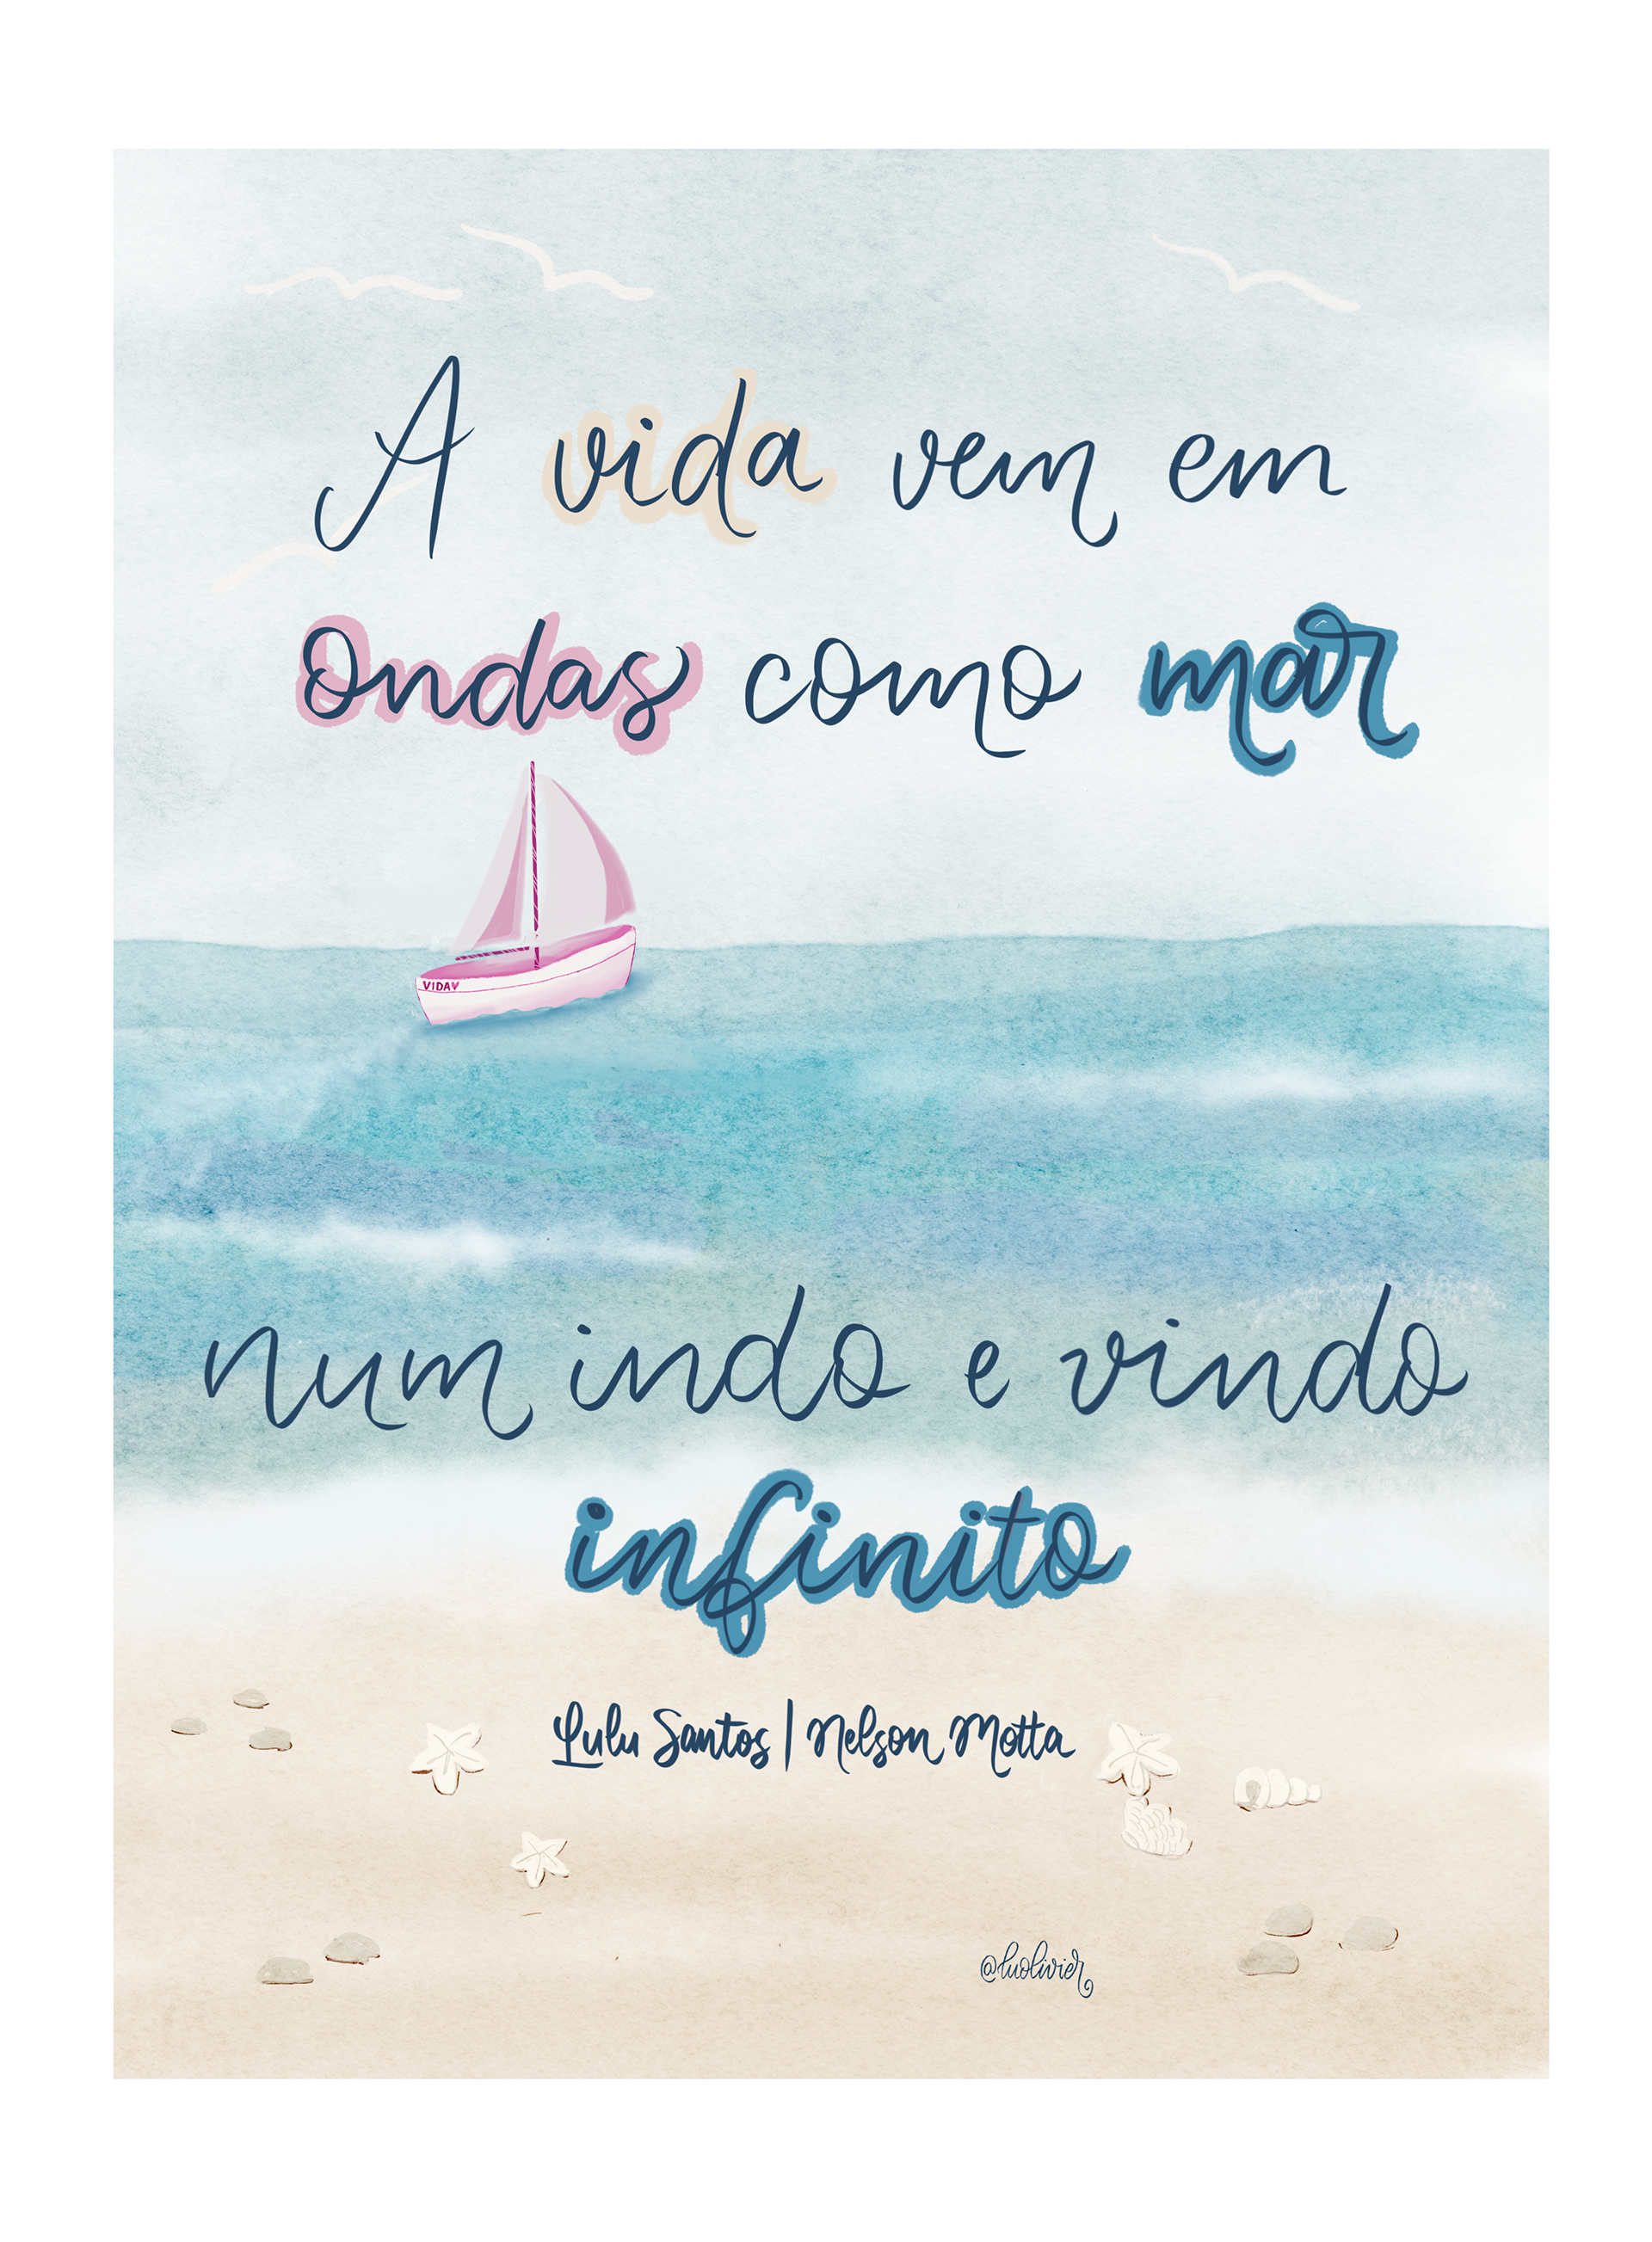 A vida vem em
ondas como mar
VIDA♥
num indo e vindo
infinito
Lulu Santos | Nelson Motta
@luolivier